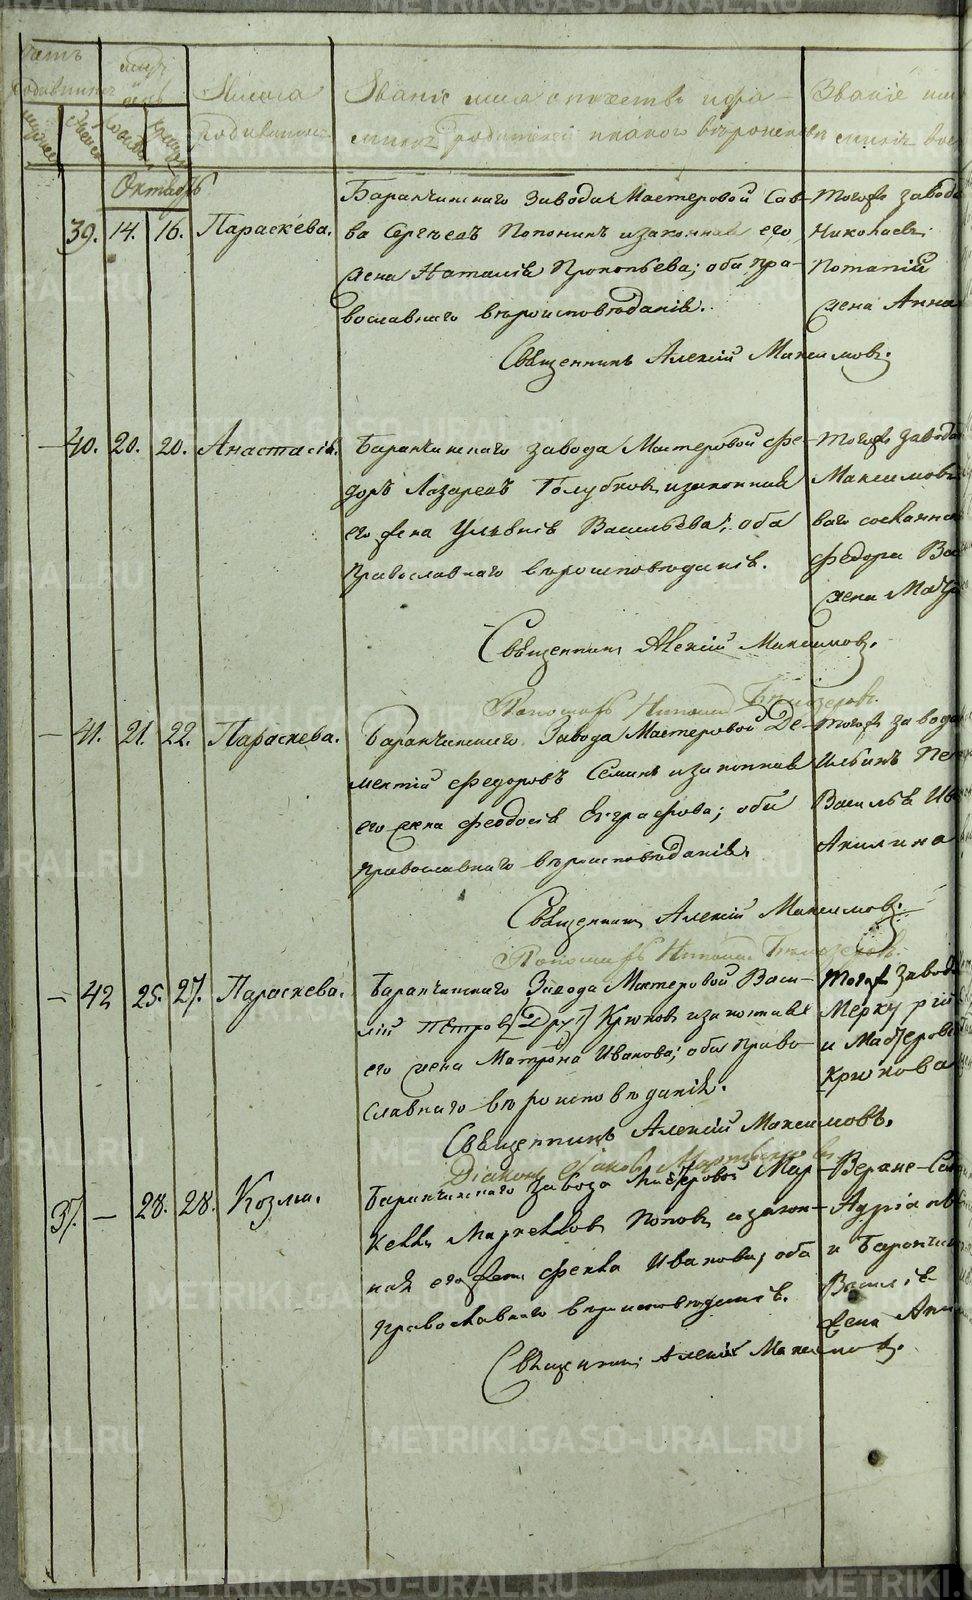 METRIKI.GASO-URAL.RU
Имена
родившихся
Званіе имя отчество и фами-
лія родителей и какого вѣроисповѣ
Званіе имя
Октябрь
39. 14. 16. Параскева.
Баранчинскаго Завода Мастеровой Сав-
ва Сергѣевъ Попонинъ и законная его
жена Наталія Прокопьева; оба пра-
вославнаго вѣроисповѣданія.
Священникъ Алексій Максимовъ.
Тогоже завода
Николаевъ
Потапій
жена Анна
40. 20. 20. Анастасія.
Баранчинскаго завода Мастеровой Фе-
доръ Лазаревъ Голубковъ и законная
его жена Ульянія Васильева; оба
православнаго вѣроисповѣданія.
Священникъ Алексій Максимовъ.
Тогоже завода
Максимовъ
Федора
жена
41. 21. 22. Параскева.
Баранчинскаго Завода Мастеровой Де-
ментій Федоровъ Семинъ и законная
его жена Феодосія Евграфова; оба
православнаго вѣроисповѣданія.
Священникъ Алексій Максимовъ.
Тогоже завода
Ильинъ
Васильѣ
Акилина
42 25. 27. Параскева.
Баранчинскаго Завода Мастеровой Васи-
лій Петровъ [Друг] Крюковъ и законная
его жена Матрона Иванова; оба Право-
славнаго вѣроисповѣданія.
Священникъ Алексій Максимовъ.
Тогоже Завода
Меркурій
и Мастеров
Крюкова
37. — 28. 28. Козма.
Баранчинскаго завода Мастеровой Мар-
келлъ Маркелловъ Поповъ и закон-
ная его жена Фекла Иванова; оба
православнаго вѣроисповѣданія.
Священникъ Алексій Максимовъ.
Верхне-
Адріановъ
и Баранчин
Василія
жена
METRIKI.GASO-URAL.RU